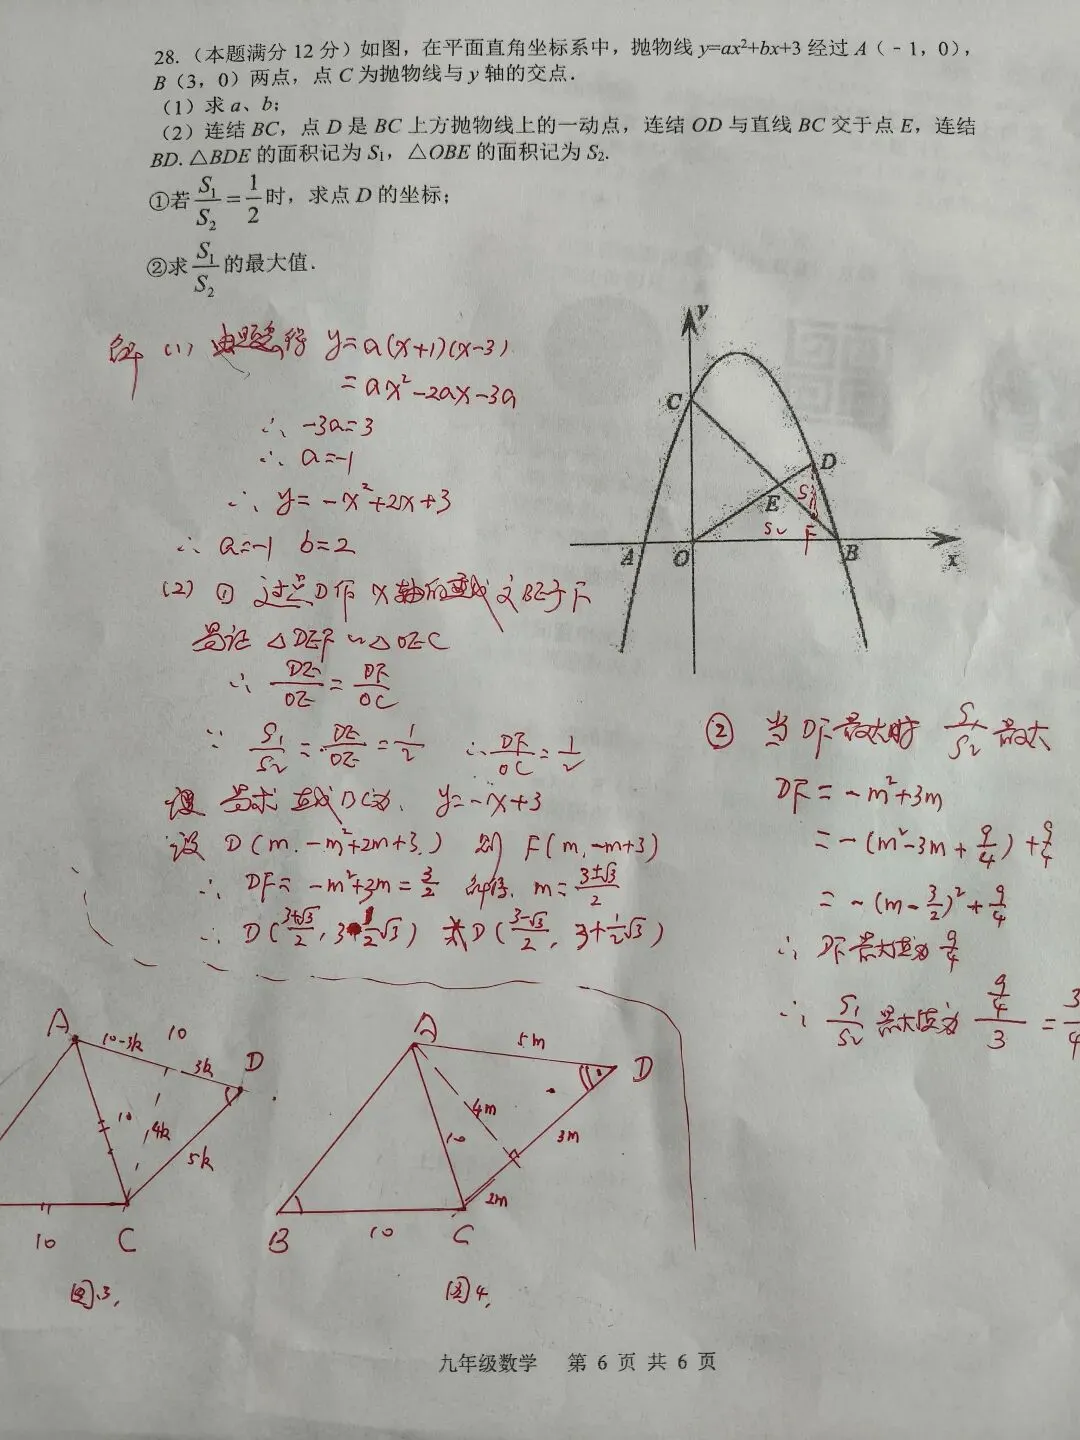 28.（本题满分 12 分）如图，在平面直角坐标系中，抛物线 y=ax²+bx+3 经过 A（﹣1，0），
B（3，0）两点，点 C 为抛物线与 y 轴的交点．
（1）求 a、b；
（2）连结 BC，点 D 是 BC 上方抛物线上的一动点，连结 OD 与直线 BC 交于点 E，连结
BD. △BDE 的面积记为 S₁，△OBE 的面积记为 S₂.
①若 S₁/S₂ = 1/2 时，求点 D 的坐标；
②求 S₁/S₂ 的最大值．
解 (1) 由题意得 y=a(x+1)(x-3)
=ax²-2ax-3a
∴ -3a=3
∴ a=-1
∴ y=-x²+2x+3
∴ a=-1 b=2
(2) ① 过点D作 x轴的垂线交BC于F
易证 △DEF∽△OEC
∴ DE/OE = DF/OC
∵ S₁/S₂ = DE/OE = 1/2 ∴ DF/OC = 1/2
易求 直线BC为 y=-x+3
设 D(m, -m²+2m+3) 则 F(m, -m+3)
∴ DF=-m²+3m=3/2 解得 m=(3±√3)/2
∴ D((3+√3)/2, 3-1/2√3) 或 D((3-√3)/2, 3+1/2√3)
y
C
D
E
S₁
S₂
F
A
O
B
x
② 当DF最大时 S₁/S₂ 最大
DF=-m²+3m
=-(m²-3m+9/4)+9/4
=-(m-3/2)²+9/4
∴ DF最大值为 9/4
∴ S₁/S₂ 最大值为 (9/4)/3 = 3/4
A
10-3k
10
3k
D
10
4k
5k
10
C
图3,
A
5m
D
4m
10
3m
2m
B
10
C
图4,
九年级数学 第 6 页 共 6 页